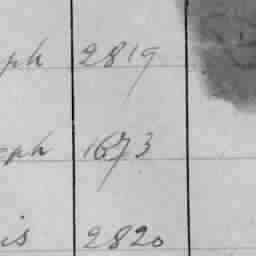 ph 2819
ph 1673
is 2820